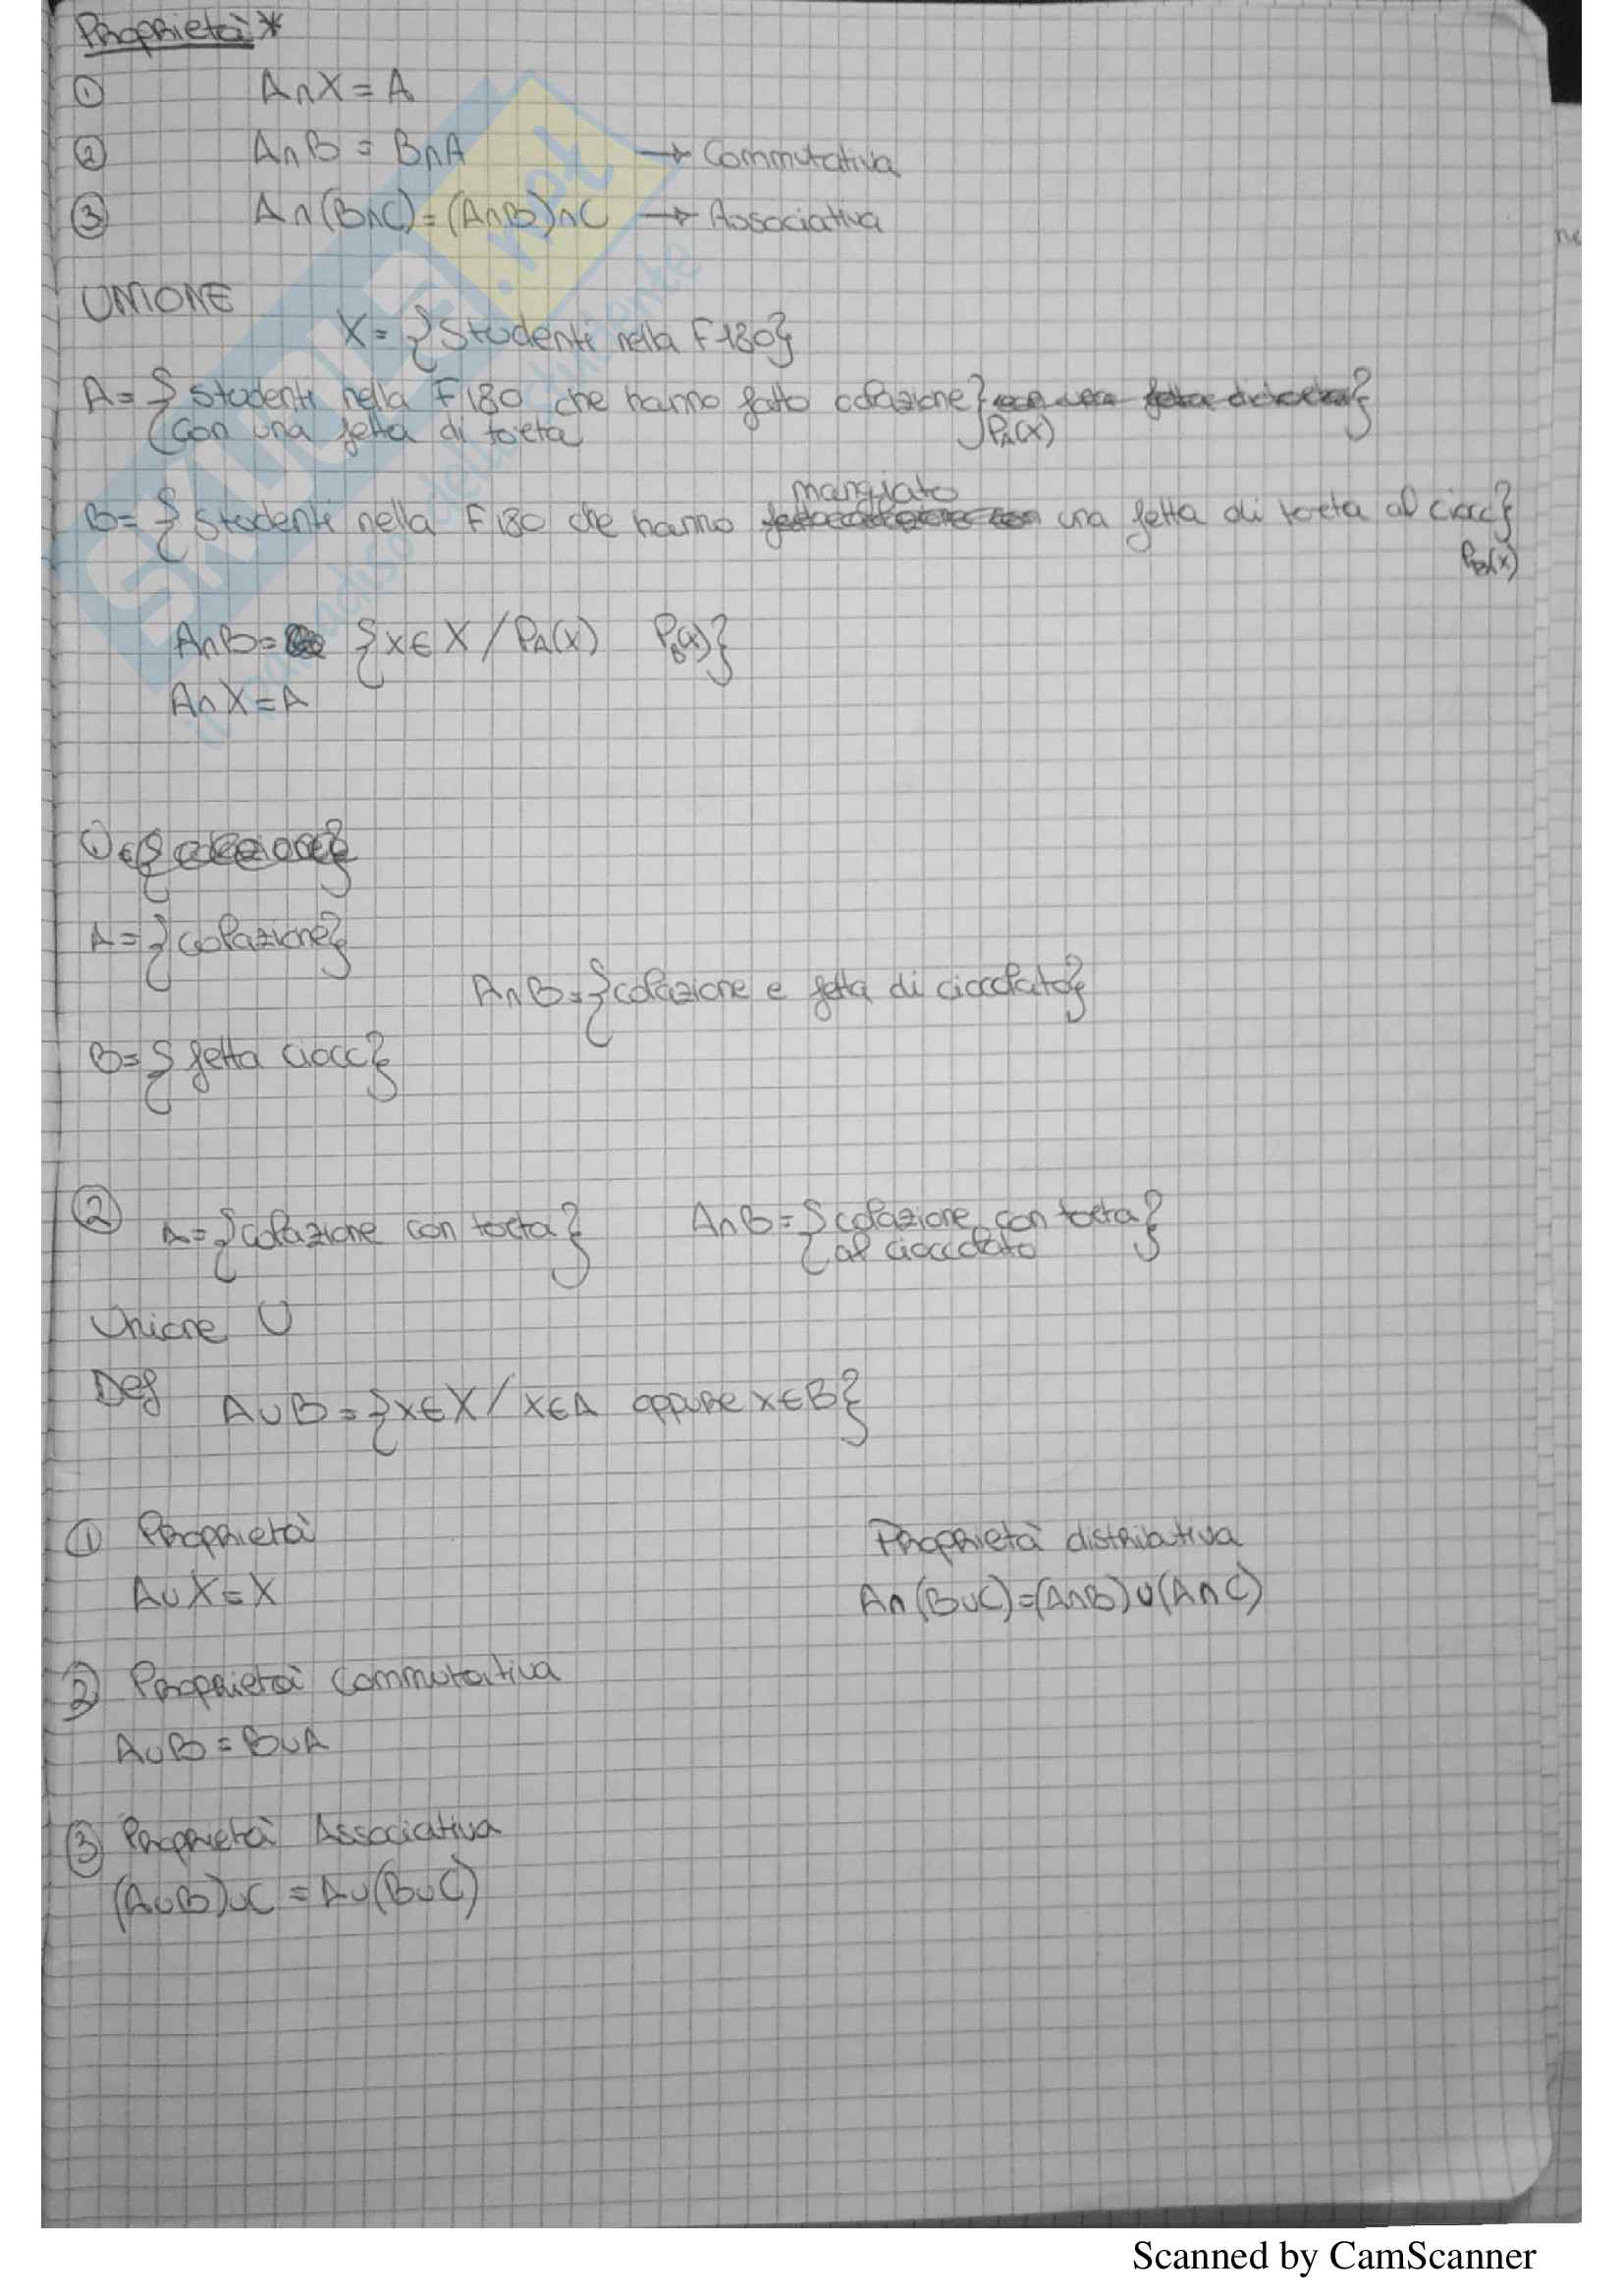 Proprietà *
① A∩X = A
② A∩B = B∩A → Commutativa
③ A∩(B∩C) = (A∩B)∩C → Associativa
UNIONE
X = {Studenti nella F180}
A = {studenti nella F180 che hanno fatto colazione}
con una fetta di torta P_A(x)
mangiato
B = {studenti nella F180 che hanno una fetta di torta al ciocc}
P_B(x)
A∩B = {x∈X / P_A(x) P_B(x)}
A∩X = A
①
A = {colazione}
A∩B = {colazione e fetta di cioccolato}
B = {fetta ciocc}
② A = {colazione con torta} A∩B = {colazione con torta}
al cioccolato
Unione ∪
Def A∪B = {x∈X / x∈A oppure x∈B}
① Proprietà Proprietà distributiva
A∪X = X A∩(B∪C) = (A∩B)∪(A∩C)
② Proprietà Commutativa
A∪B = B∪A
③ Proprietà Associativa
(A∪B)∪C = A∪(B∪C)
SKUOLA.net
il paradiso dello studente
Scanned by CamScanner